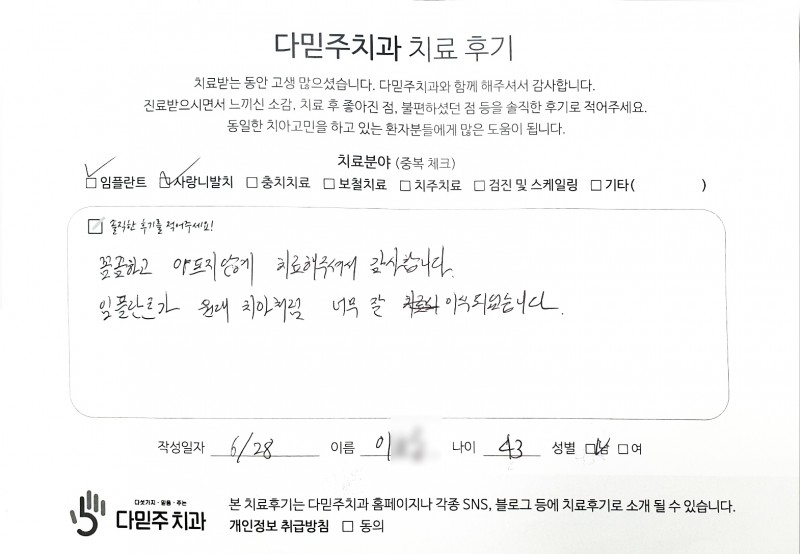 다믿주치과 치료 후기
치료받는 동안 고생 많으셨습니다. 다믿주치과와 함께 해주셔서 감사합니다.
진료받으시면서 느끼신 소감, 치료 후 좋아진 점, 불편하셨던 점 등을 솔직한 후기로 적어주세요.
동일한 치아고민을 하고 있는 환자분들에게 많은 도움이 됩니다.
치료분야 (중복 체크)
☑ 임플란트 ☑ 사랑니발치 □ 충치치료 □ 보철치료 □ 치주치료 □ 검진 및 스케일링 □ 기타( )
솔직한 후기를 적어주세요!
꼼꼼하고 아프지않게 치료해주셔서 감사합니다.
임플란트가 원래 치아처럼 너무 잘 이식되었습니다.
작성일자 6/28 이름 이 나이 43 성별 ☑남 □여
다섯가지·믿음·주는
다믿주치과
본 치료후기는 다믿주치과 홈페이지나 각종 SNS, 블로그 등에 치료후기로 소개 될 수 있습니다.
개인정보 취급방침 □ 동의